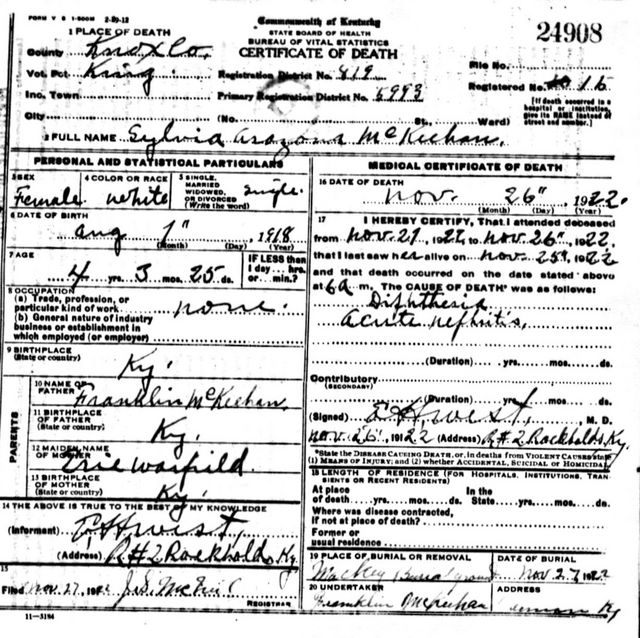 FORM V S 1-500M 2-20-12
Commonwealth of Kentucky
STATE BOARD OF HEALTH
BUREAU OF VITAL STATISTICS
CERTIFICATE OF DEATH
24908
1 PLACE OF DEATH
County Knox Co.
Vot. Pct King
Inc. Town
City (No. St., Ward)
Registration District No. 619
Primary Registration District No. 6993
File No.
Registered No. 16
[If death occurred in a hospital or institution, give its NAME instead of street and number.]
2 FULL NAME Sylvia Arazona McKeehan.
PERSONAL AND STATISTICAL PARTICULARS
3 SEX Female
4 COLOR OR RACE White
5 SINGLE, MARRIED WIDOWED, OR DIVORCED (Write the word) Single.
6 DATE OF BIRTH
Aug 1" 1918
(Month) (Day) (Year)
7 AGE
4 yrs 3 mos. 25 ds.
IF LESS than 1 day... hrs. or... min.?
8 OCCUPATION
(a) Trade, profession, or particular kind of work none.
(b) General nature of industry business or establishment in which employed (or employer)
9 BIRTHPLACE
(State or country) Ky.
PARENTS
10 NAME OF FATHER Franklin McKeehan,
11 BIRTHPLACE OF FATHER (State or country) Ky.
12 MAIDEN NAME OF MOTHER Warfield
13 BIRTHPLACE OF MOTHER (State or country) Ky.
14 THE ABOVE IS TRUE TO THE BEST OF MY KNOWLEDGE
(Informant) E H West,
(Address) R#2 Rockholds, Ky
15
Filed Nov. 27, 192
REGISTRAR
11-3184
MEDICAL CERTIFICATE OF DEATH
16 DATE OF DEATH
Nov. 26" 1922.
(Month) (Day) (Year)
17 I HEREBY CERTIFY, That I attended deceased
from Nov. 21, 1922 to Nov. 26", 1922,
that I last saw her alive on Nov. 25", 1922
and that death occurred on the date stated above
at 6 a m. The CAUSE OF DEATH* was as follows:
Diphtheria
Acute nephritis,
(Duration) yrs. mos. ds.
Contributory
(SECONDARY)
(Duration) yrs. mos. ds.
(Signed) E H West, M. D.
Nov. 26", 1922 (Address) R#2 Rockholds, Ky.
*State the DISEASE CAUSING DEATH, or, in deaths from VIOLENT CAUSES state
(1) MEANS OF INJURY; and (2) whether ACCIDENTAL, SUICIDAL or HOMICIDAL
18 LENGTH OF RESIDENCE (FOR HOSPITALS, INSTITUTIONS, TRANSIENTS OR RECENT RESIDENTS)
At place of death yrs. mos. ds. In the State yrs. mos. ds.
Where was disease contracted,
If not at place of death?
Former or
usual residence
19 PLACE OF BURIAL OR REMOVAL
Mackey Burial ground
DATE OF BURIAL
Nov. 27 1922
20 UNDERTAKER
Franklin McKeehan
ADDRESS
Ky